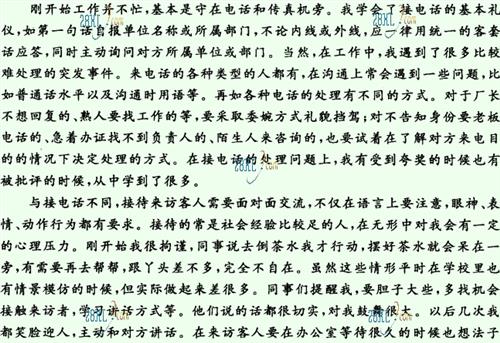 刚开始工作并不忙，基本是守在电话和传真机旁。我学会了接电话的基本礼
仪，如第一句话自报单位名称或所属部门，不论内线或外线，应一律用统一的客套
话应答，同时主动询问对方所属单位或部门。当然，在工作中，我遇到了很多比较
难处理的突发事件。来电话的各种类型的人都有，在沟通上常会遇到一些问题，比
如普通话水平以及沟通时用语等。再如各种电话的处理有不同的方式。对于厂长
不想回复的、熟人要找工作的等，要采取委婉方式礼貌挡驾；对不告知身份要老板
电话的、急着办证找不到负责人的、陌生人来咨询的，也要试着在了解对方来电目
的的情况下决定处理的方式。在接电话的处理问题上，我有受到夸奖的时候也有
被批评的时候，从中学到了很多。
与接电话不同，接待来访客人需要面对面交流，不仅在语言上要注意，眼神、表
情、动作行为都有要求。接待的常是社会经验比较足的人，在无形中对我会有一定
的心理压力。刚开始我很拘谨，同事说去倒茶水我才行动，摆好茶水就会呆在一
旁，有需要再去帮帮，跟丫头差不多，完全不自在。虽然这些情形平时在学校里也
有情景模仿的时候，但实际做起来差很多。同事们提醒我，要胆子大些，多找机会
接触来访者，学习讲话方式等。他们说的话都很切实，对我鼓舞很大。以后几次我
都笑脸迎人，主动和对方讲话。在来访客人要在办公室等待很久的时候也想法子
28xl.com
28xl.com
28xl.com
28xl.com
28xl.com